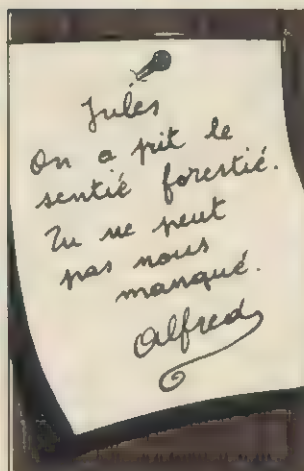 Jules
On a prit le
sentié forestié.
Tu ne peut
pas nous
manqué.
Alfred